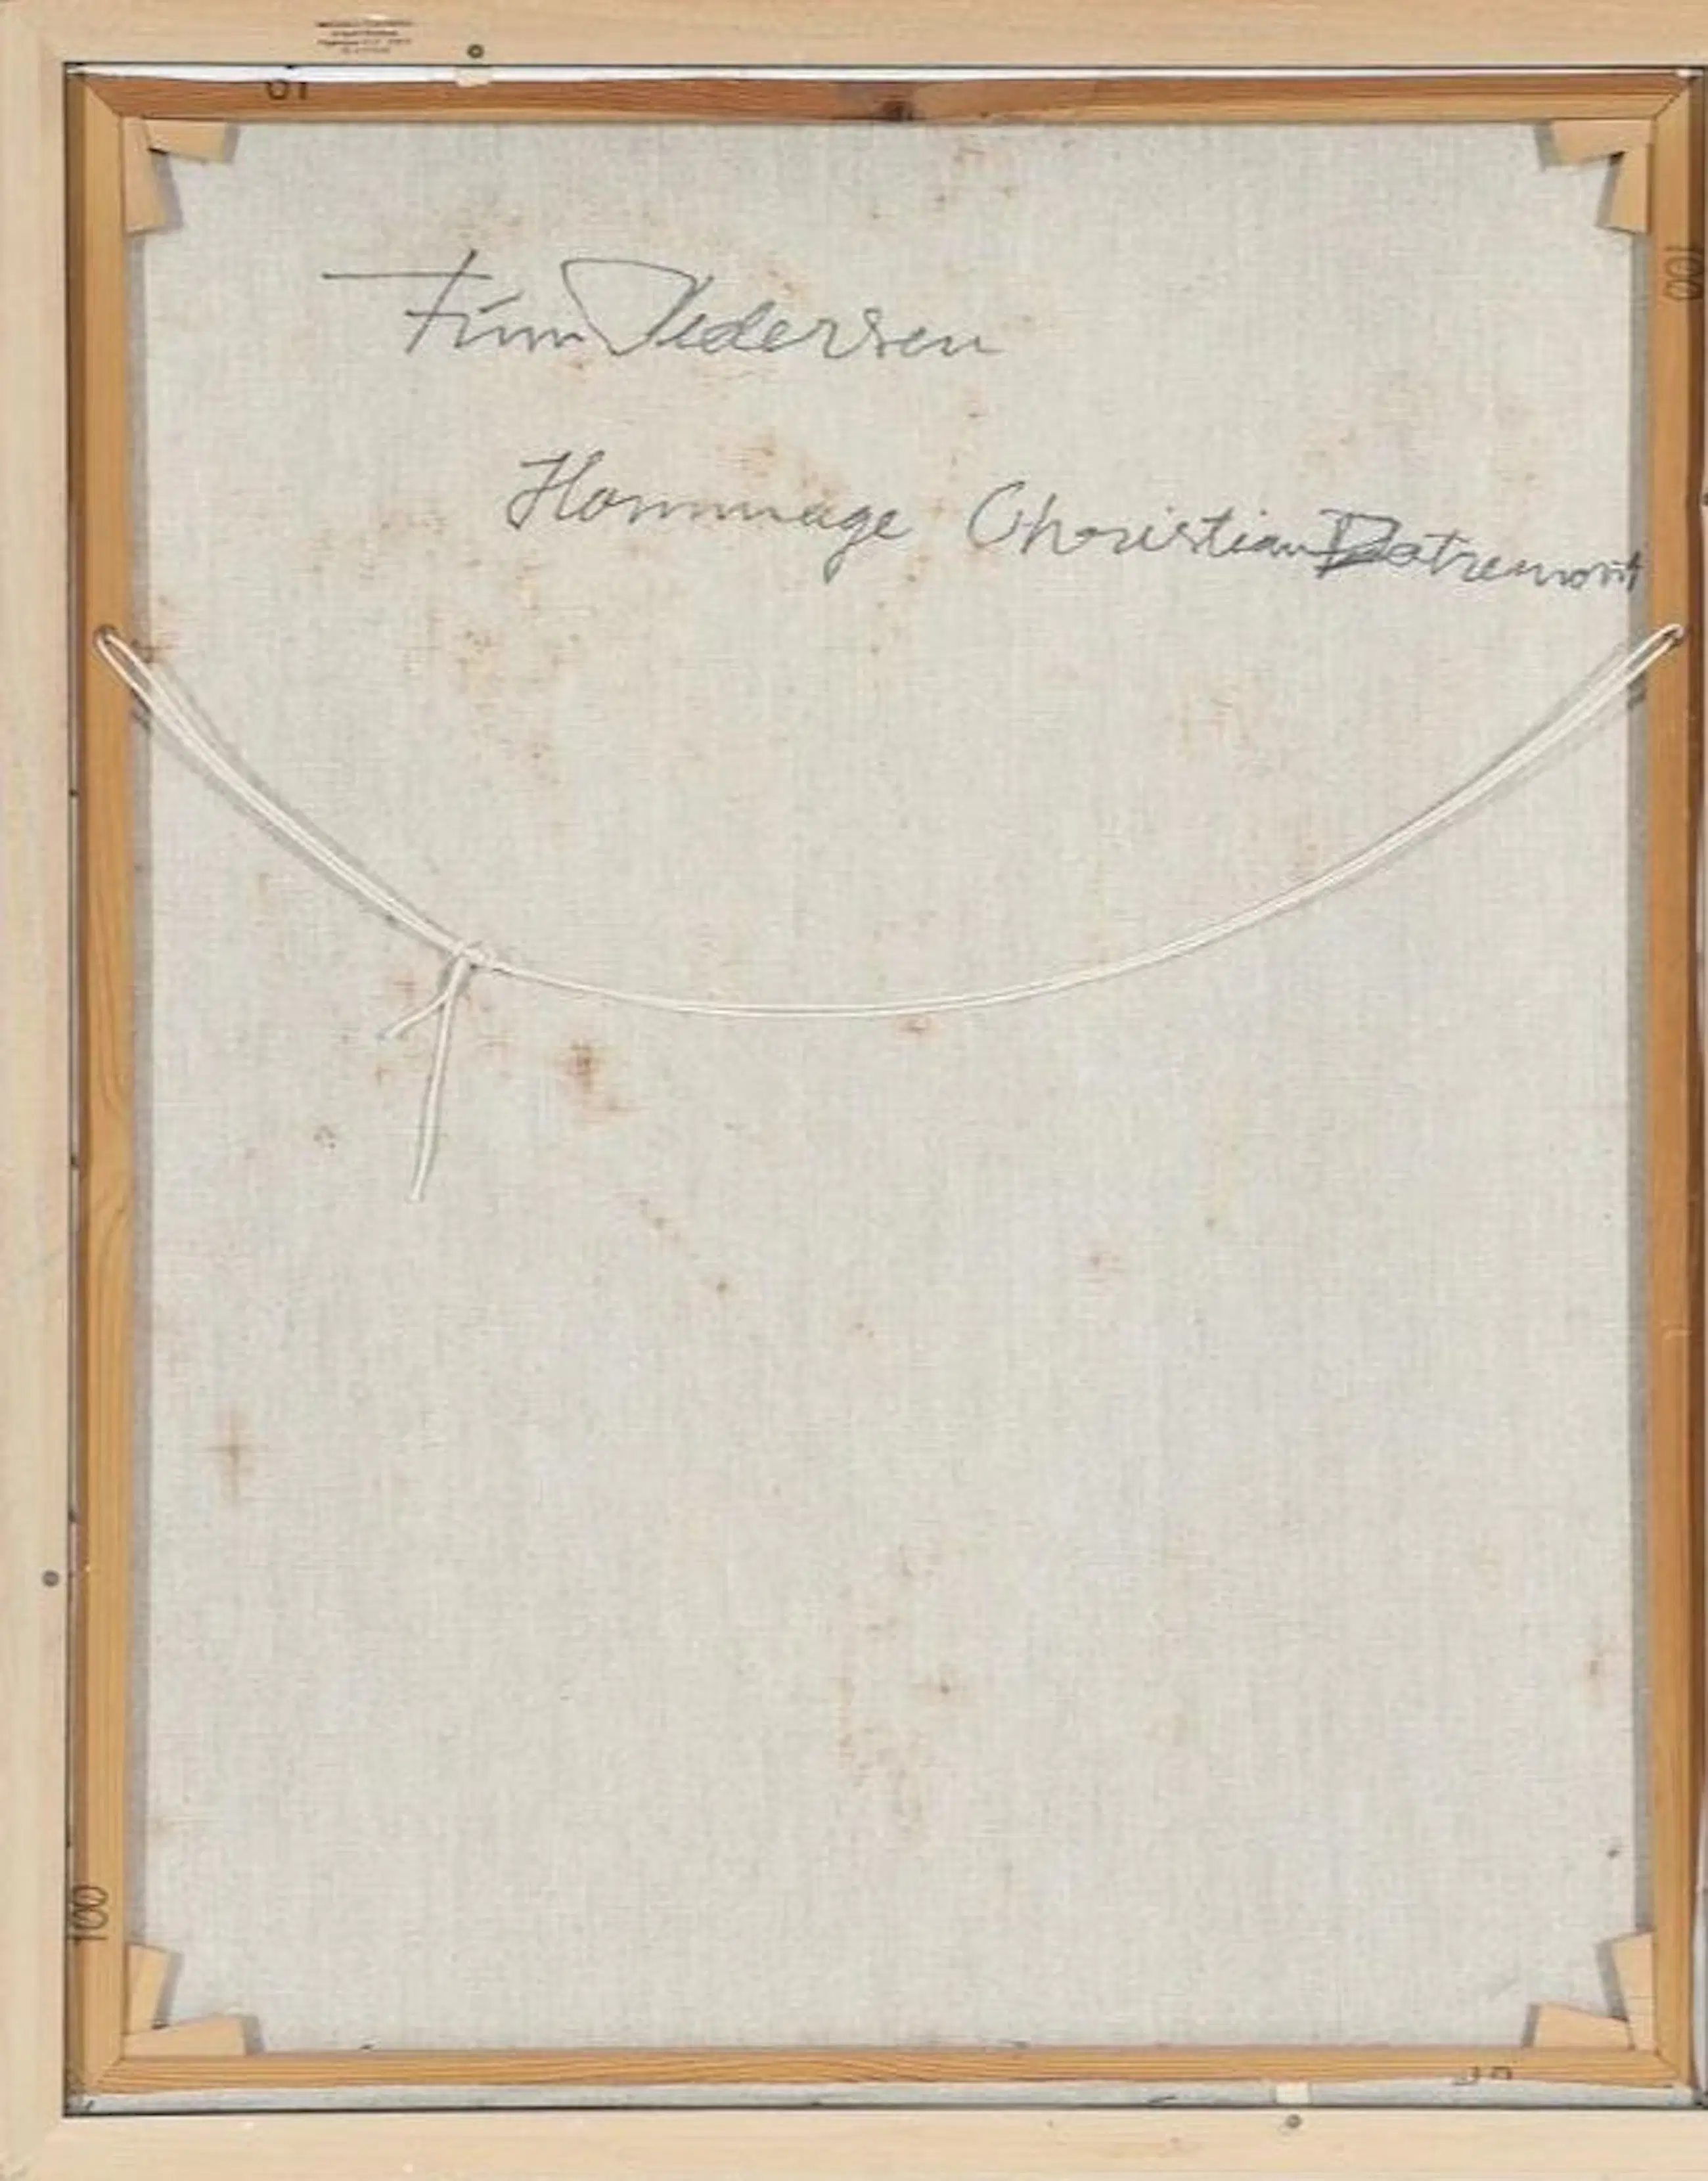 Finn Pedersen
Hommage Christian Dotremont
100
100